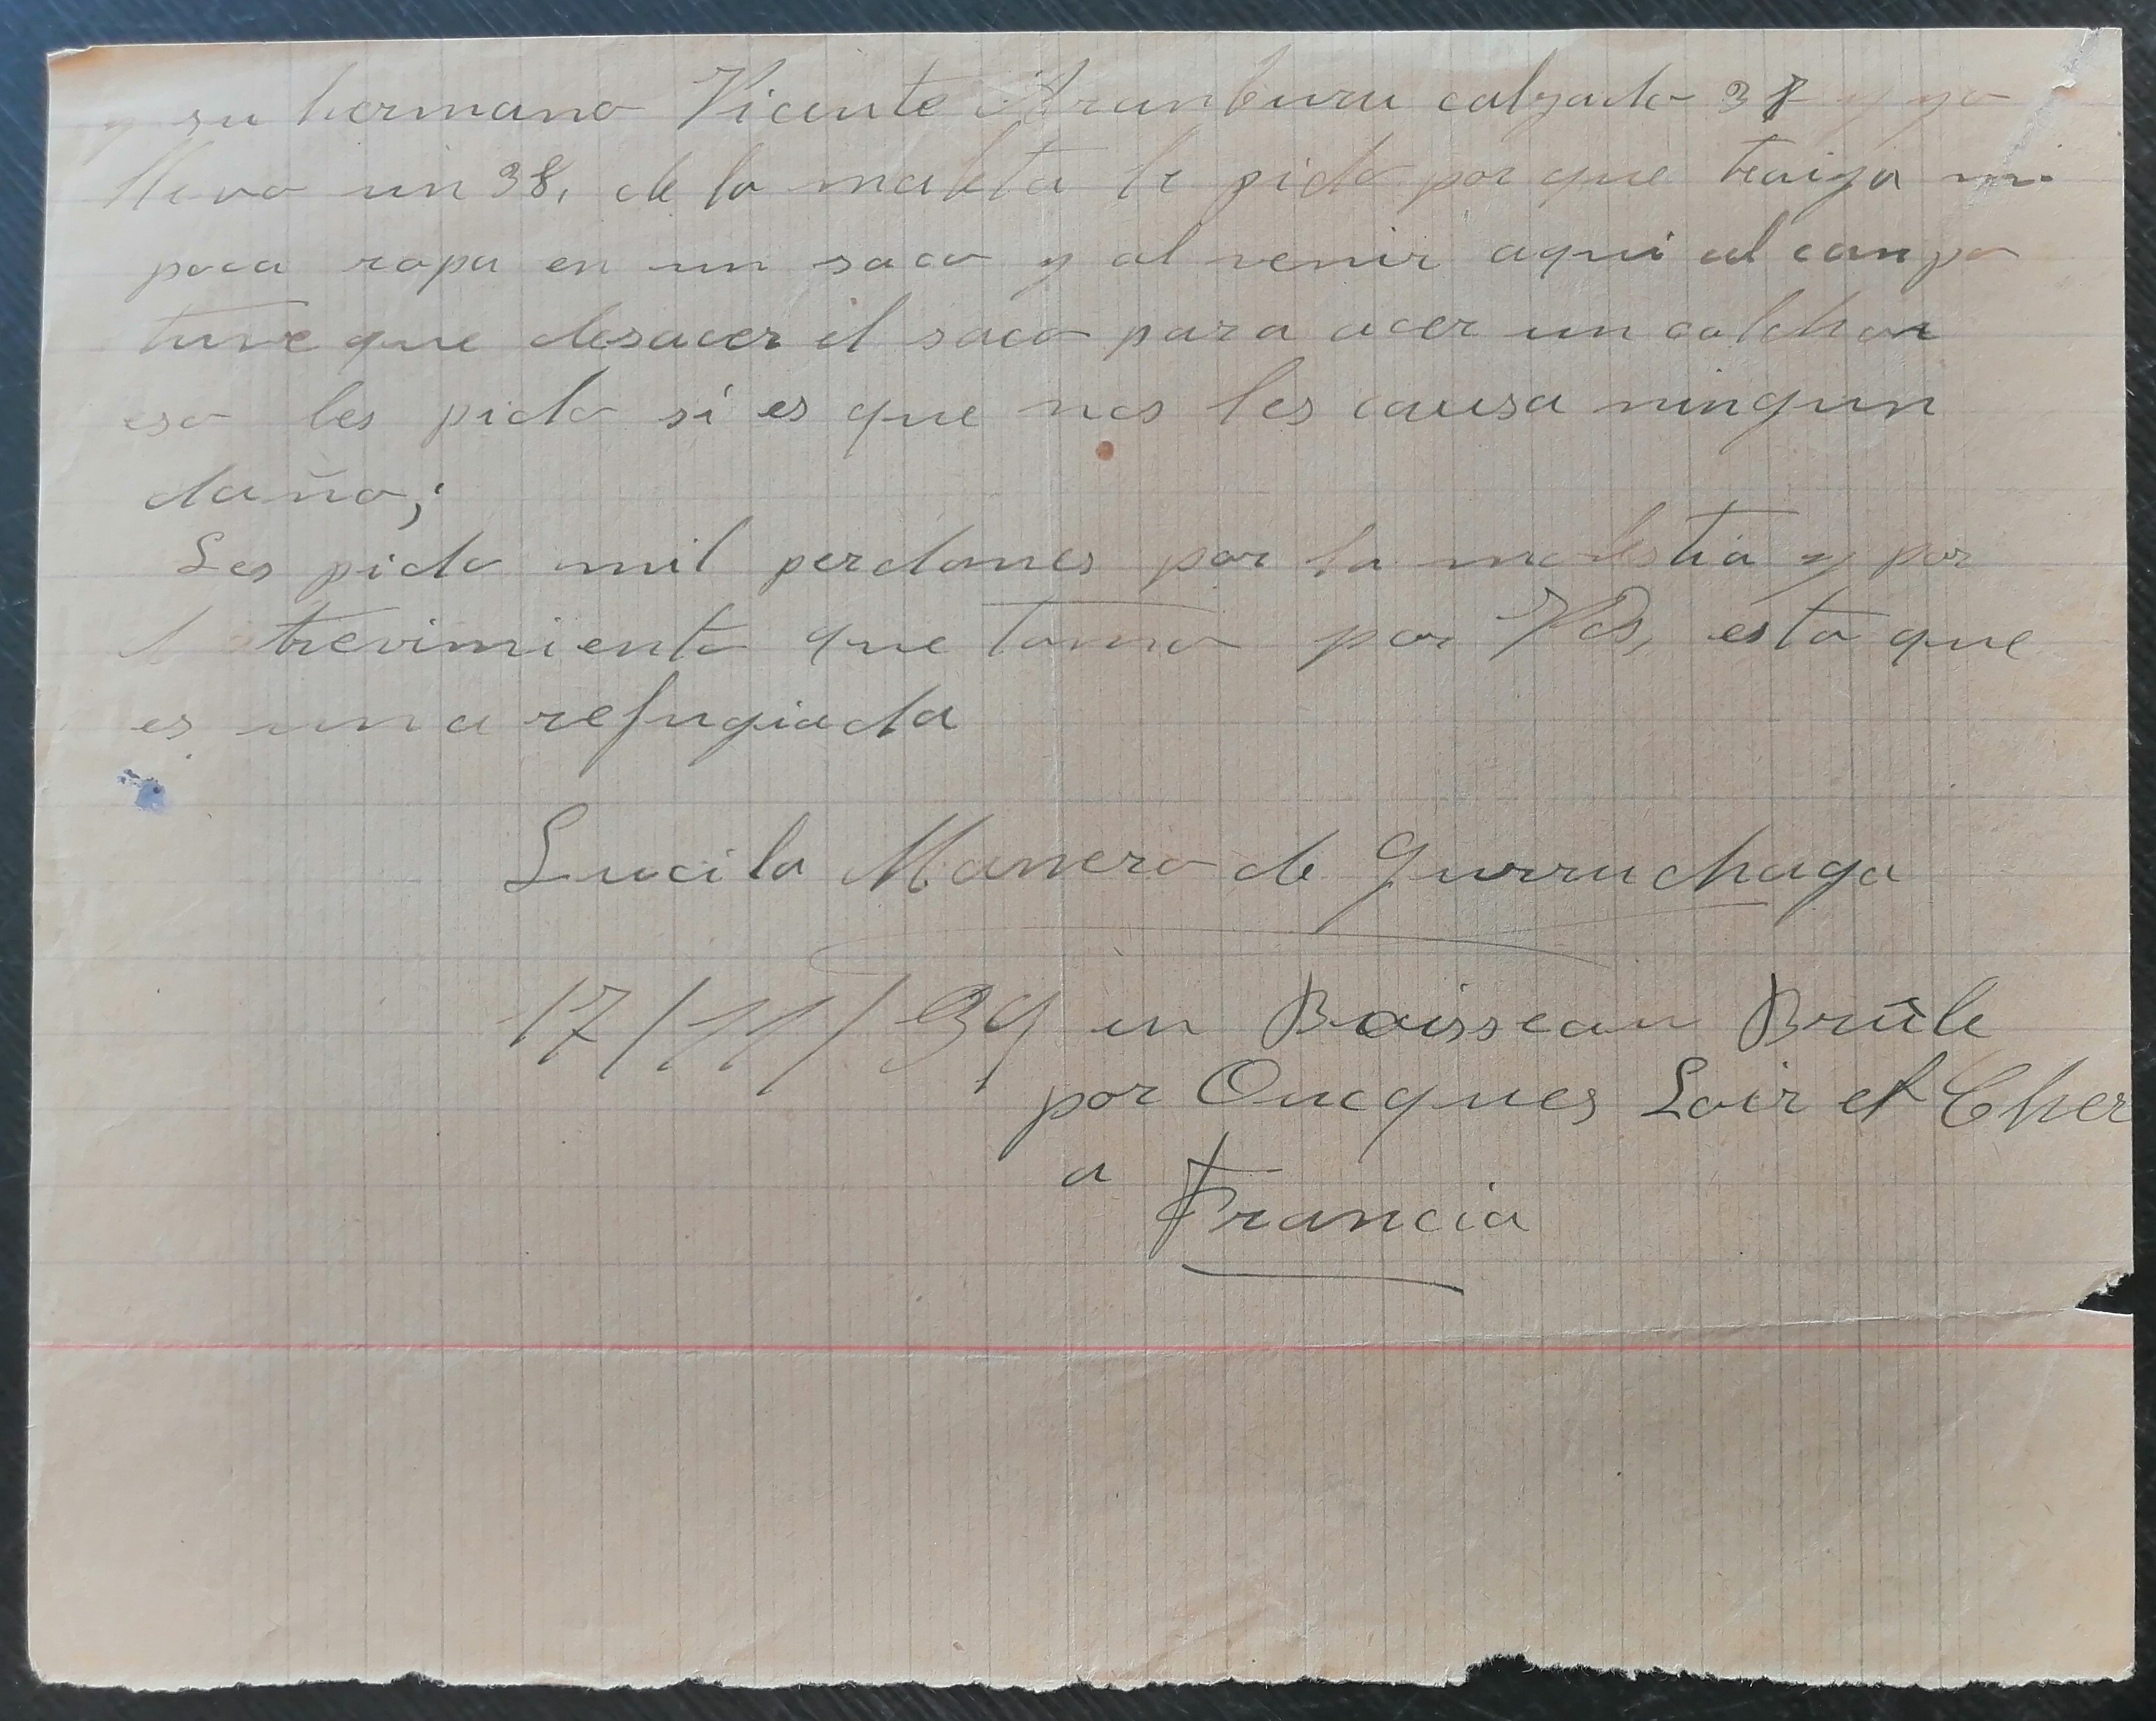 y su hermano Vicente Aranburu calzado 38 y yo
llevo un 38, de la maleta le pido por que traiga mi
poca ropa en un saco y al venir aqui al canpo
tuve que desacer el saco para acer un colchon
eso les pido si es que nos les causa ningun
daño;
Les pido mil perdones por la molestia y por
trevimiento que tomo por Vds, esta que
es una refugiada
Lucila Manero de Gurruchaga
17/11/39 en Boisseau Brûle
por Oucques Loir et Cher
a
Francia